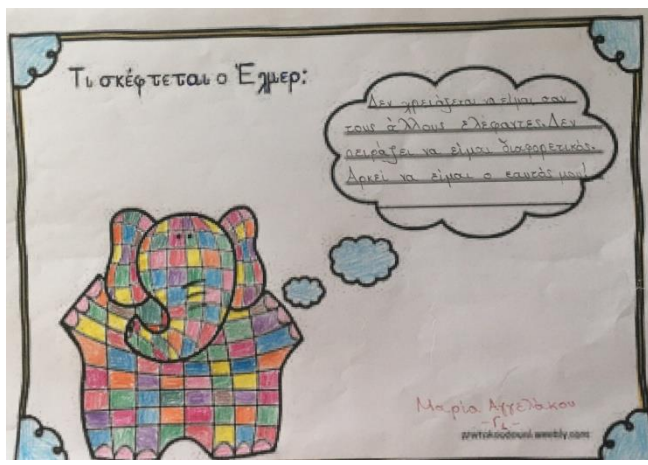 Τι σκέφτεται ο Έλμερ:
Δεν χρειάζεται να είμαι σαν
τους άλλους ελέφαντες. Δεν
πειράζει να είμαι διαφορετικός.
Αρκεί να είμαι ο εαυτός μου!
Μαρία Αγγελάκου
protokoudouni.weebly.com